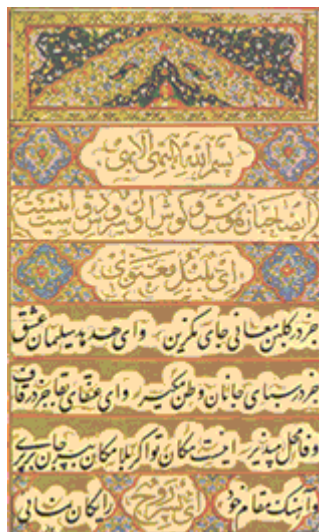 بسم الله البهی الابهی
ایصاحبان هوش و گوش اول سروش دوست اینست
ای بلبل معنوی
جز در گلبن معانی جای مگزین و ای هدهد سلیمان عشق
جز در سبای جانان وطن مگیر و ای عنقای بقا جز در قاف
وفا محل مپذیر اینست مکان تو اگر بلامکان بپر جان برپری
و آهنگ مقام خود ای پسر روح رایگان نمائی